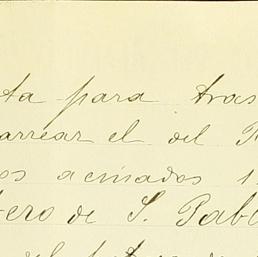 ta para tras
arrear el del
os acinados
ero de S. Pabl